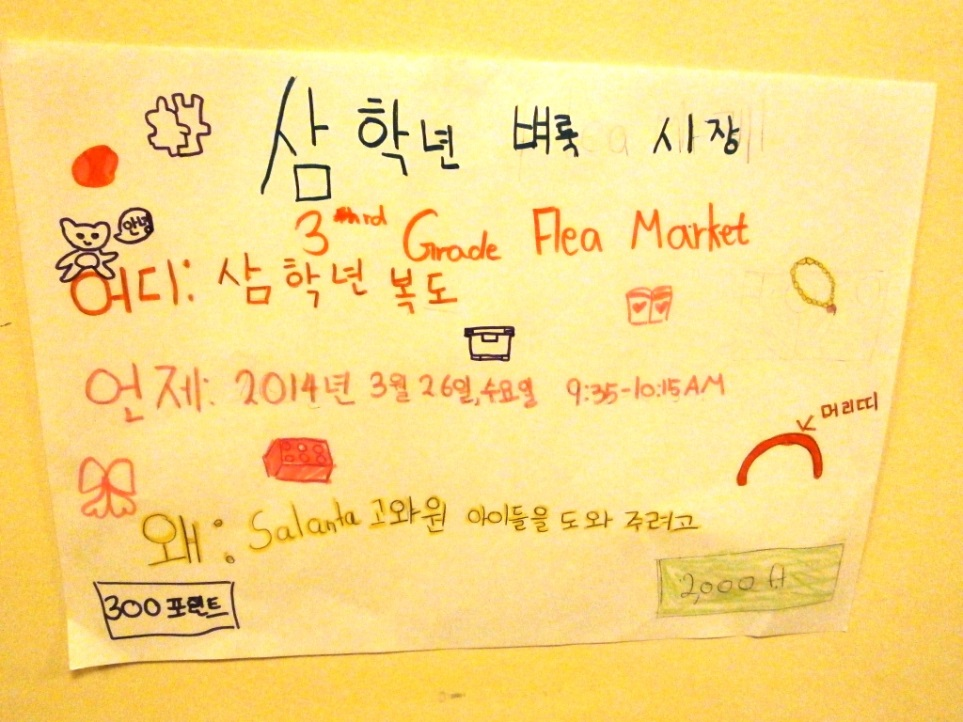 삼학년 벼룩 시장
3rd Grade Flea Market
안녕
어디: 삼학년 복도
언제: 2014년 3월 26일, 수요일 9:35-10:15AM
머리띠
왜: Salanta 고와원 아이들을 도와 주려고
300 포린트
2,000